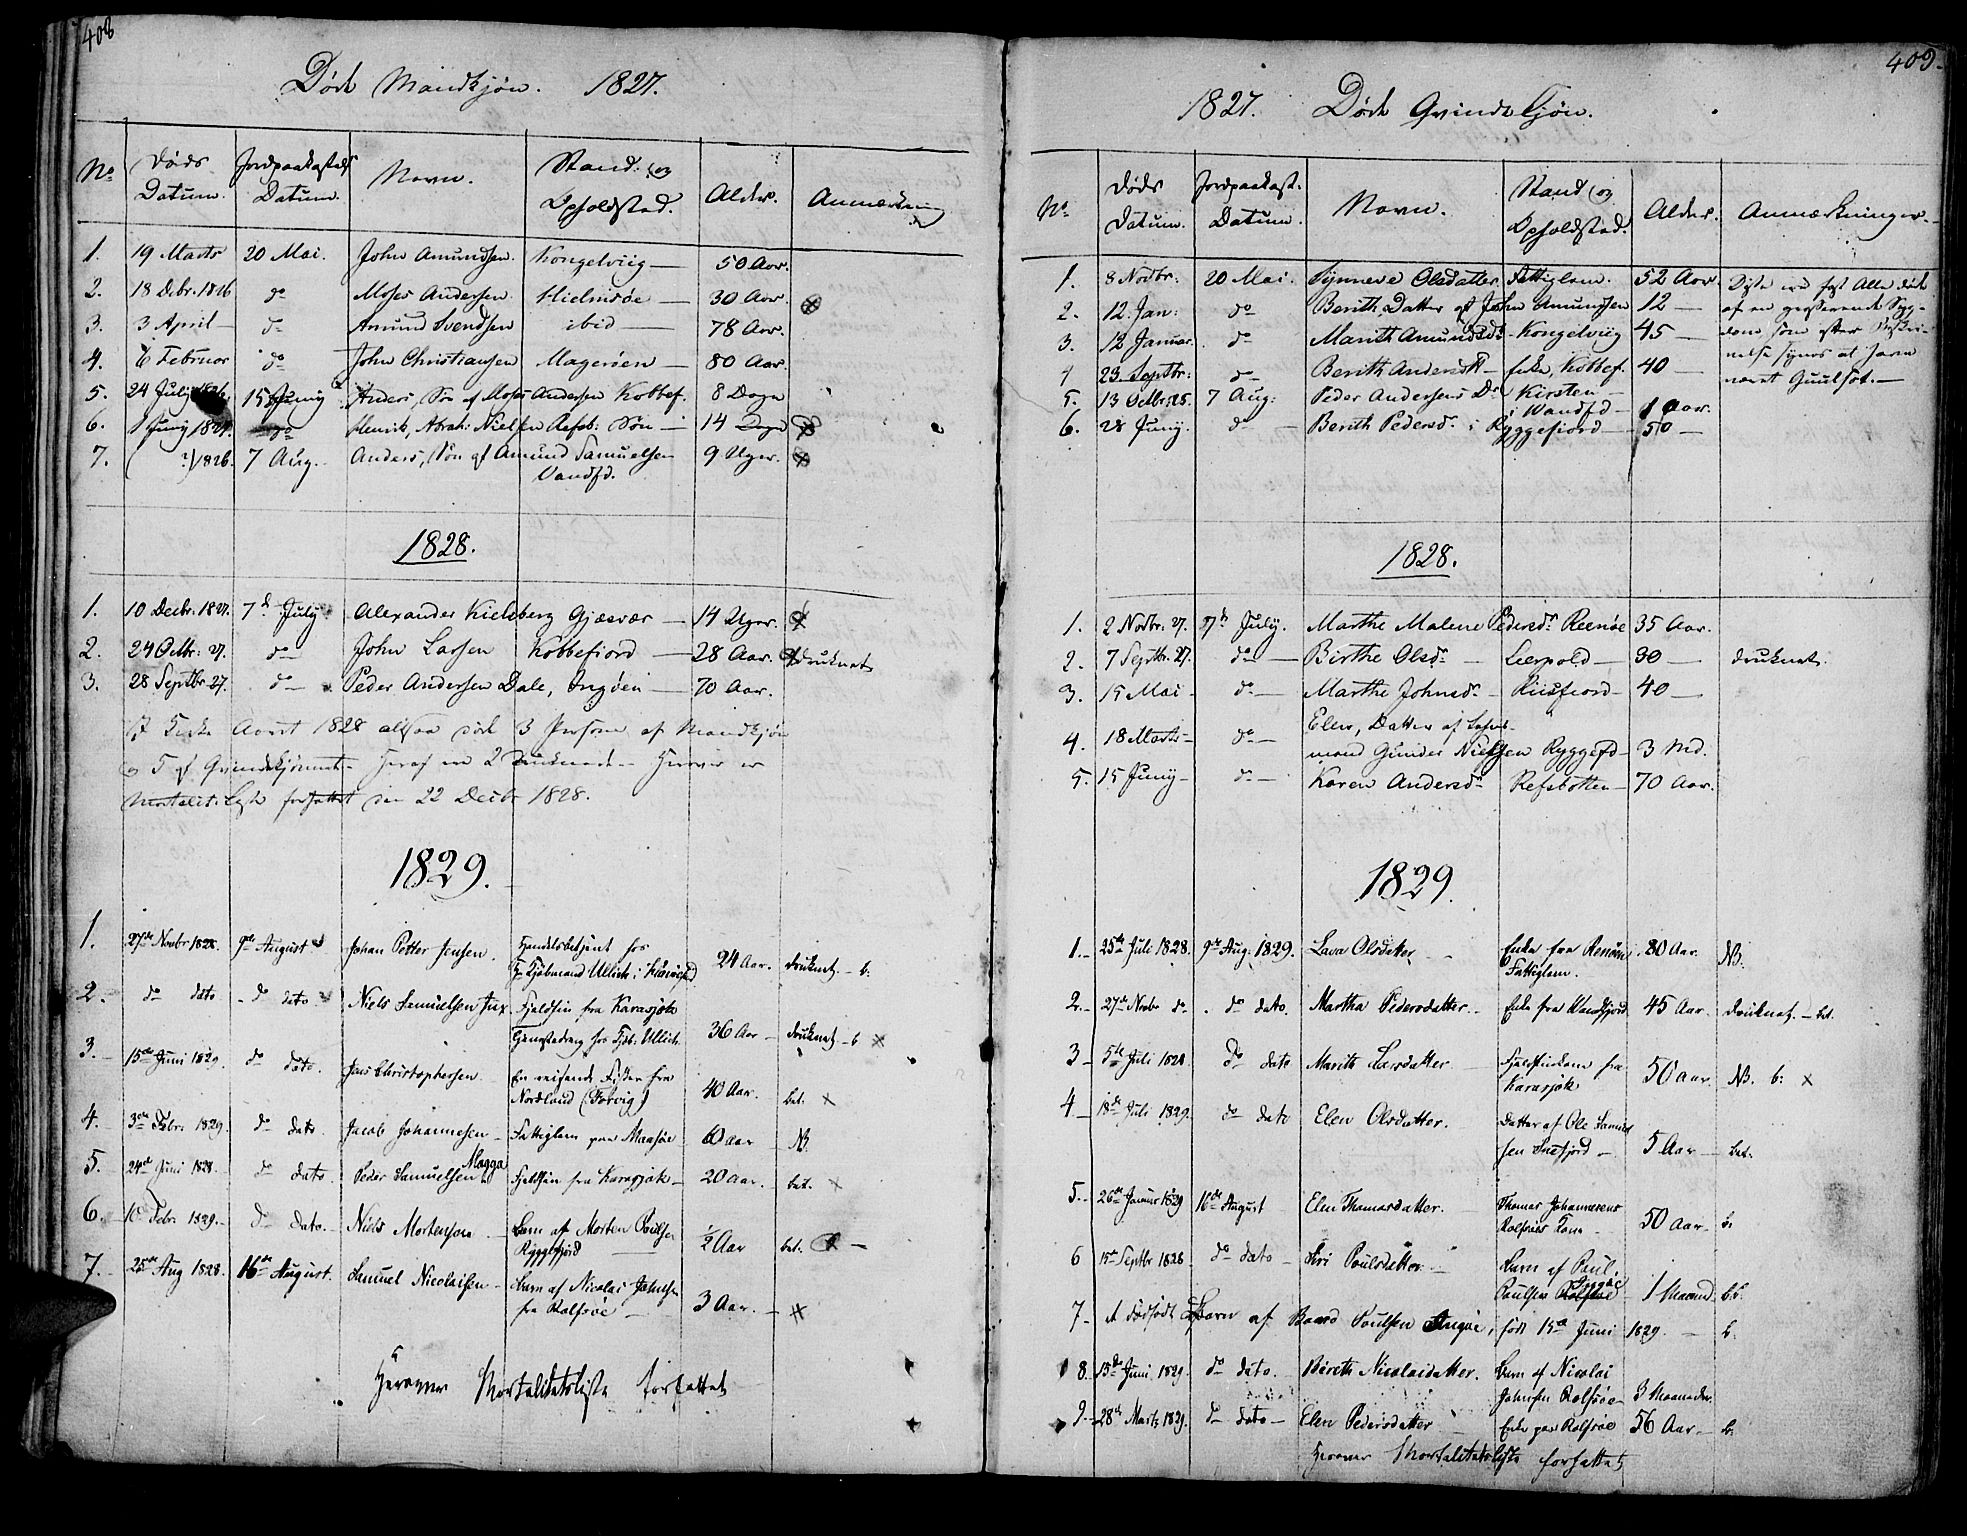 408
Døde Mandkjøn. 1827.
No Døds Datum. Jordpaakastels Datum. Navn. Stand og Opholdsted. Alder. Anmærkning
1. 19 Marts 20 Mai. John Amundsen. Kongelviig — 50 Aar.
2. 18 Debr. 1826 do Moses Andersen Hielmsøe — 30 Aar.
3. 3 April — do Amund Svendsen ibid — 78 Aar.
4. 6 Februar do John Christiansen Magerøen — 80 Aar.
5. 24 July 1826. 15 Juny Anders, Søn af Moses Andersen Kobbef. 8 Dogn
6. 1 Juny 1827. do Henrik, Abrah: Nielsen Refsb: Søn — 14 Dogn
7. 1826. 7 Aug. Anders, Søn af Amund Samuelsen 9 Uger.
Vandfd.
1828.
1. 10 Decbr. 1827. 7d July Alexander Kielsberg Gjæsvær — 14 Uger.
2. 24 Octbr: 27. do John Larsen Kobbefiord — 28 Aar. druknet
3. 28 Septbr 27. do — Peder Andersen Dale, Ingøen — 70 Aar.
Kirke Aaret 1828 altsaa død 3 Persone af Mandkjøn
og 5 af Qvindekjønnet. Heraf ere 2 Druknede. Herover er
Mortalit: Liste forfattet den 22 Decbr 1828.
1829.
1. 27de Novbr 1828. 9de August Johan Petter Jensen. Handelsbetjent hos
Hr Kjøbmand Ullich i 24 Aar. druknet — b.
2. do dato do dato Niels Samuelsen Fjeldfin fra Karasjok
Tjenestedreng hos Kjbm. Ullich 36 Aar — druknet — b
3. 15de Juni 1829. do dato. Jens Christophersen En reisende Fisker fra
Nordland (Torvig) 40 Aar. bet.
4. 3de Febr. 1829. do dato. Jacob Johannesen — Fattiglem paa Maasøe 60 Aar NB.
5. 24de Juni 1828. do dato. Peder Samuelsen Magga Fjeldfin fra Karasjok — 20 Aar. — bet.
6. 10de Febr. 1829. — do dato. — Niels Mortensen — Barn af Morten Poulsen
Ryggefjord ½ Aar bet.
7. 25de Aug 1828. 16de August. Samuel Nicolaisen — Barn af Nicolai Johnsen
fra Rolfsøe — 3 Aar. —
Herover Mortalitetsliste forfattet
409.
1827. Døde Qvindekjøn.
No Døds Datum. Jordpaakast. Datum. Navn. Stand og Opholdsted. Alder. Anmærkninger.
1. 8 Novbr: 20 Mai. Synneve Olsdatter Fattiglem. 52 Aar. Disse ere fast Alle døde
2. 12. Jan: do Berith, Datter af John Amundsen 12 — af en grasserende Syg-
3. 12 Januar. do Marith Amundsd. Kongelviig 45 — dom som efter Beskri-
4 23. Septbr: do — Berith Andersd. — Enke, Kobbef. 40 — velse synes at have
5. 13 Octbr: 25. 7 Aug: Peder Andersens Dr Kirsten — været Guulsot. —
i Vandfd — 1 Aar.
6. 28 Juny. do Berith Pedersdr i Ryggefiord — 50 —
1828.
1. 2 Novbr. 27. 7d July. Marthe Malene Pedersdr Reenøe 35 Aar.
2. 7 Septbr. 27. do — Birthe Olsdr — Leerpold — 30 — druknet.
3. 15 Mai — do — Marthe Johnsdr — Riisfiord — 40 —
4. 18 Marts — do — Elen, Datter af
mand Gunder Nielsen Ryggefd — 3 Md.
5. 15 Juny — do — Karen Andersdr Refsbotten — 70 Aar.
1829.
1. — 25de Juli 1828. 9de Aug. 1829. Lava Olsdatter — Enke fra Renøen, 80 Aar. NB.
Fattiglem.
2. — 27de Novbr do. do dato. Martha Pedersdatter — Enke fra Vandfjord 45 Aar. Druknet. — bet.
3 — 5te Juli 1828 do dato Marith Larsdatter — Fjeldfindom fra
Karasjok 50 Aar NB. b:
4 — 18de Juli 1829. do dato Elen Olsdatter. Datter af Ole Samuel
sen Snefjord — 5 Aar — bet:
5. — 26de Januar 1829 16de August Elen Thomasdatter. Thomas Johannesens
Rolfsøes Kone — 50 Aar. b.
6 15de Septbr 1828 do dato — Siri Poulsdatter — Barn af Poul
Poulsen Ingøe 1 Maaned. b.
7 — et dødfødt Barn af Baard Poulsen Ingøe, født 15de Juni 1829. — b.
8. 13de Juni 1829 do dato. Bereth Nicolaidatter. Barn af Nicolai
Johnsen Rolfsøe — 3 Maaneder.
9. — 28de Marts 1829. do dato — Elen Pedersdatter Enke paa Rolfsøe 56 Aar — b.
Herover Mortalitetsliste forfattet